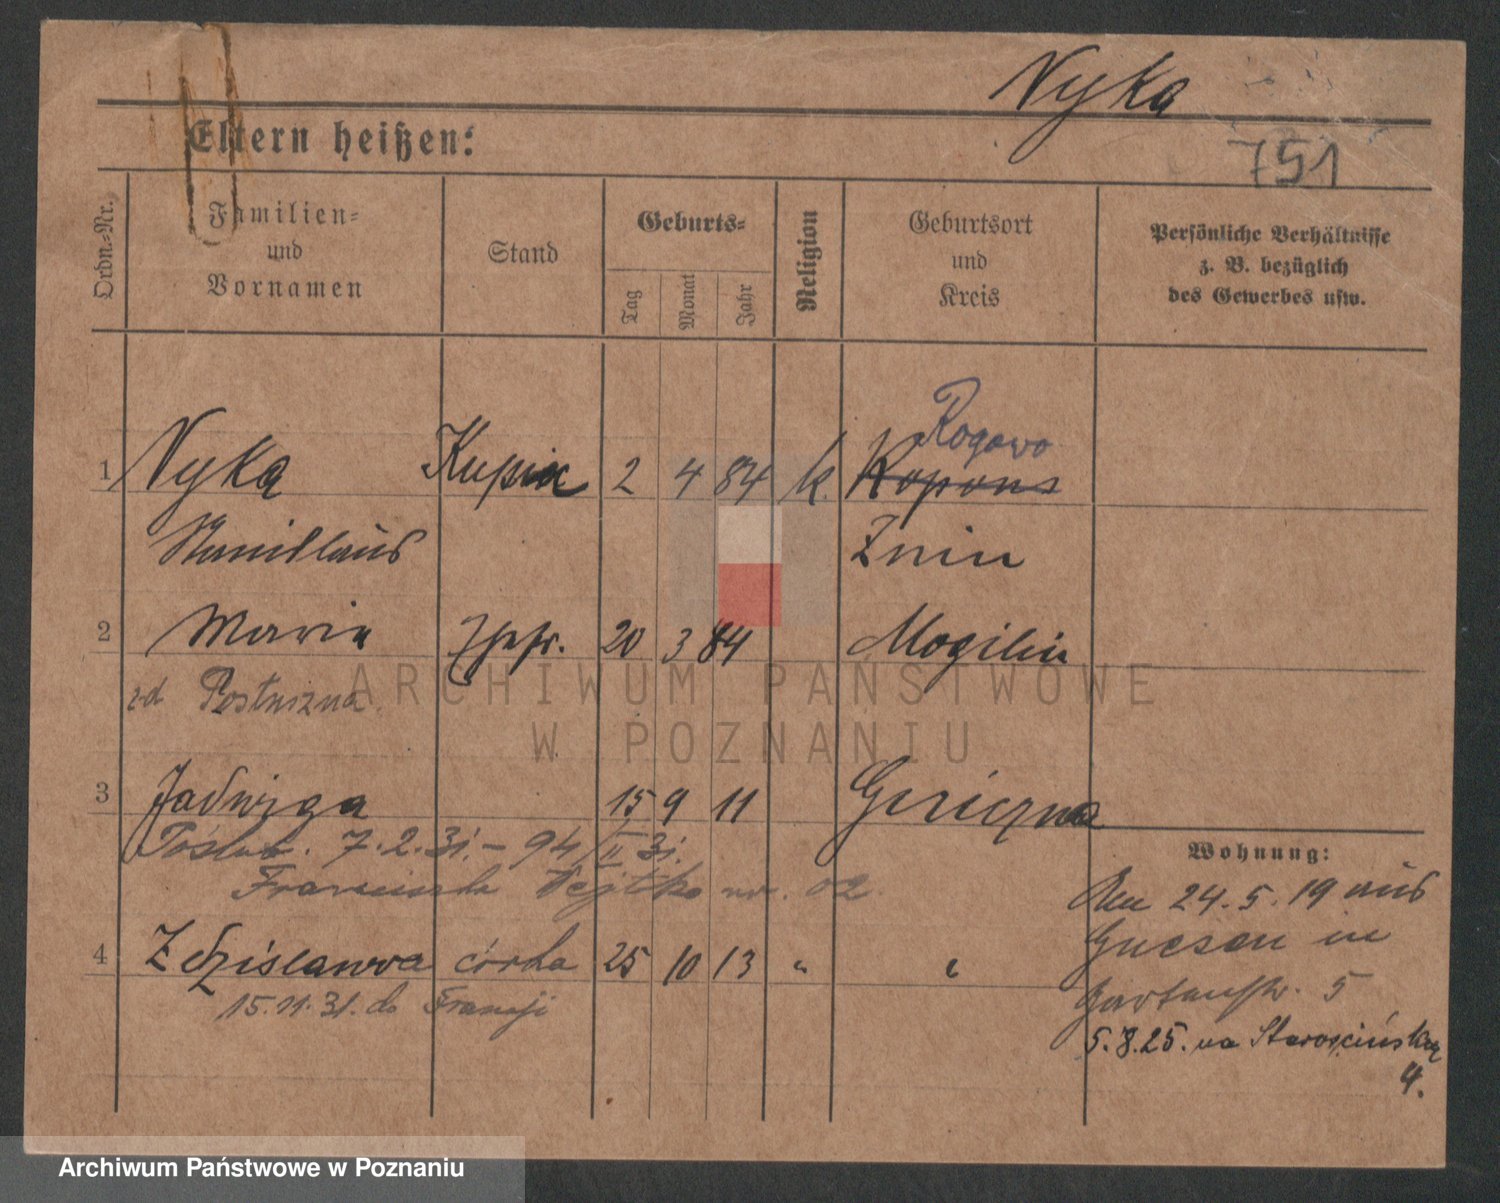 Nyka
Eltern heißen:
751
Ordn.-Nr.
Familien-
und
Vornamen
Stand
Geburts-
Tag
Monat
Jahr
Religion
Geburtsort
und
Kreis
Persönliche Verhältnisse
z. B. bezüglich
des Gewerbes usw.
Rogowo
1 Nyka 2 4 84 k.
Stanislaus Znin
2 Maria Ehefr. 20 3 84 Mogilin
zd
3 Jadwiga 15 9 11
7.2.31. - 94/II 31.
Wohnung:
Am 24.5.19 aus
Gnesen in
Gartenstr. 5
4 Zdzisława córka 25 10 13 " "
15.11.31. do Francji
5.8.25. na Starościńską
4.
ARCHIWUM PAŃSTWOWE
W POZNANIU
Archiwum Państwowe w Poznaniu